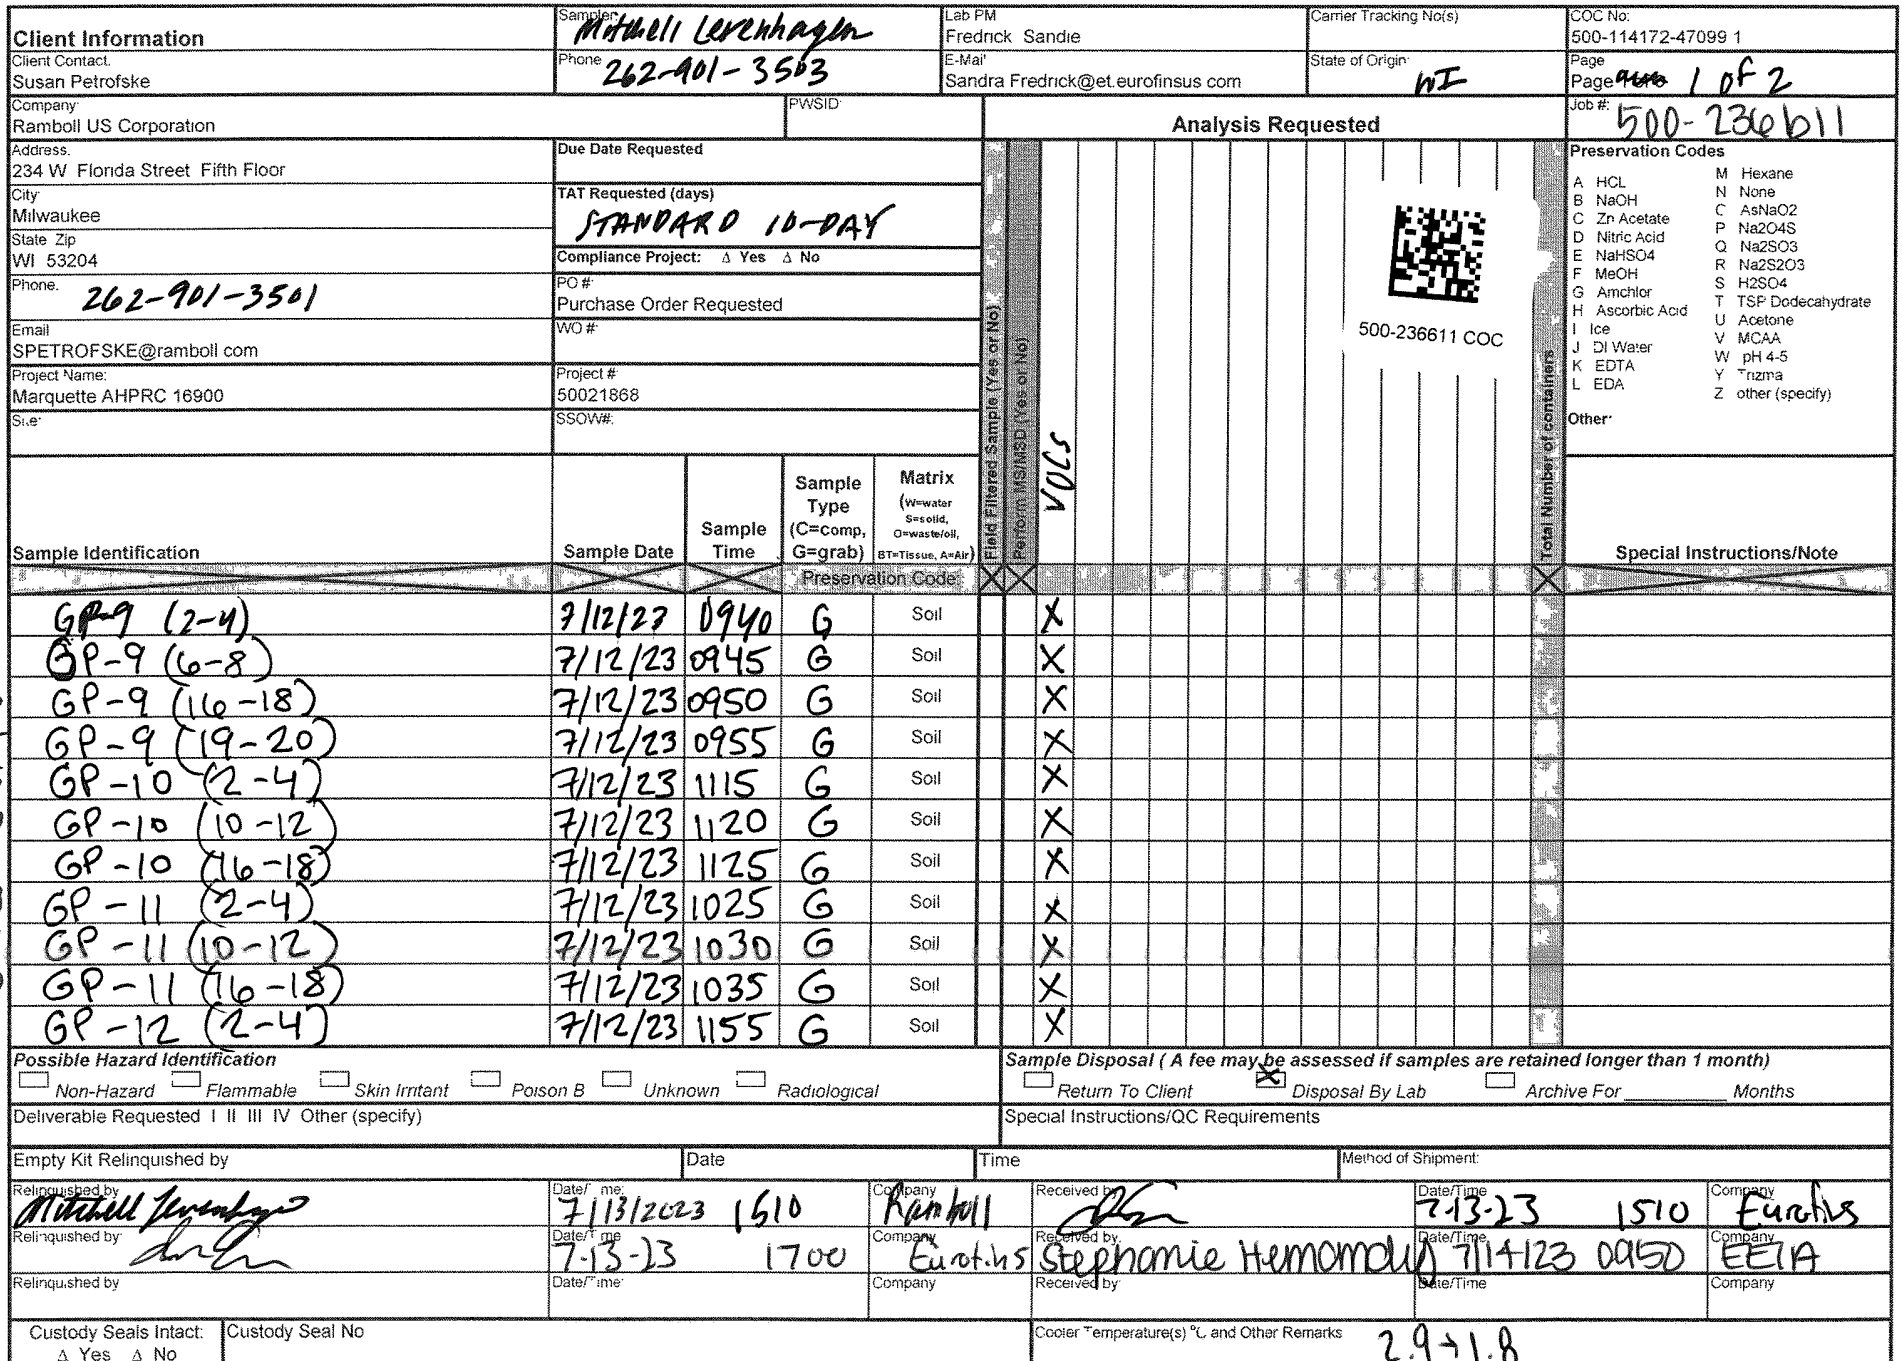 Client Information
Sampler: Mitchell Levenhagen
Lab PM
Fredrick Sandie
Carrier Tracking No(s)
COC No:
500-114172-47099 1
Client Contact.
Susan Petrofske
Phone 262-901-3503
E-Mail
Sandra Fredrick@et.eurofinsus com
State of Origin:
WI
Page
Page 1 of 2
Company
Ramboll US Corporation
PWSID:
Analysis Requested
Job #:
500-236611
Address.
234 W Florida Street Fifth Floor
City
Milwaukee
State Zip
WI 53204
Phone. 262-901-3501
Email
SPETROFSKE@ramboll com
Project Name:
Marquette AHPRC 16900
Site:
Due Date Requested
TAT Requested (days)
STANDARD 10-DAY
Compliance Project: Δ Yes Δ No
PO #:
Purchase Order Requested
WO #:
Project #:
50021868
SSOW#:
Field Filtered Sample (Yes or No)
Perform MS/MSD (Yes or No)
VOCs
500-236611 COC
Total Number of containers
Preservation Codes
A HCL
B NaOH
C Zn Acetate
D Nitric Acid
E NaHSO4
F MeOH
G Amchlor
H Ascorbic Acid
I Ice
J DI Water
K EDTA
L EDA
M Hexane
N None
C AsNaO2
P Na2O4S
Q Na2SO3
R Na2S2O3
S H2SO4
T TSP Dodecahydrate
U Acetone
V MCAA
W pH 4-5
Y Trizma
Z other (specify)
Other:
Sample Identification
Sample Date
Sample Time
Sample Type (C=comp, G=grab)
Matrix (W=water S=solid, O=waste/oil, BT=Tissue, A=Air)
Special Instructions/Note
Preservation Code:
GP-9 (2-4) 7/12/23 0940 G Soil X
GP-9 (6-8) 7/12/23 0945 G Soil X
GP-9 (16-18) 7/12/23 0950 G Soil X
GP-9 (19-20) 7/12/23 0955 G Soil X
GP-10 (2-4) 7/12/23 1115 G Soil X
GP-10 (10-12) 7/12/23 1120 G Soil X
GP-10 (16-18) 7/12/23 1125 G Soil X
GP-11 (2-4) 7/12/23 1025 G Soil X
GP-11 (10-12) 7/12/23 1030 G Soil X
GP-11 (16-18) 7/12/23 1035 G Soil X
GP-12 (2-4) 7/12/23 1155 G Soil X
Possible Hazard Identification
Non-Hazard Flammable Skin Irritant Poison B Unknown Radiological
Sample Disposal ( A fee may be assessed if samples are retained longer than 1 month)
Return To Client X Disposal By Lab Archive For Months
Deliverable Requested I II III IV Other (specify)
Special Instructions/QC Requirements
Empty Kit Relinquished by
Date
Time
Method of Shipment:
Relinquished by Mitchell Levenhagen Date/Time: 7/13/2023 1510 Company Ramboll Received by Date/Time 7-13-23 1510 Company Eurofins
Relinquished by: Date/Time 7-13-23 1700 Company Eurofins Received by: Stephanie Date/Time 7/14/23 0950 Company EETA
Relinquished by Date/Time: Company Received by: Date/Time Company
Custody Seals Intact:
Δ Yes Δ No
Custody Seal No
Cooler Temperature(s) °C and Other Remarks 2.9→1.8